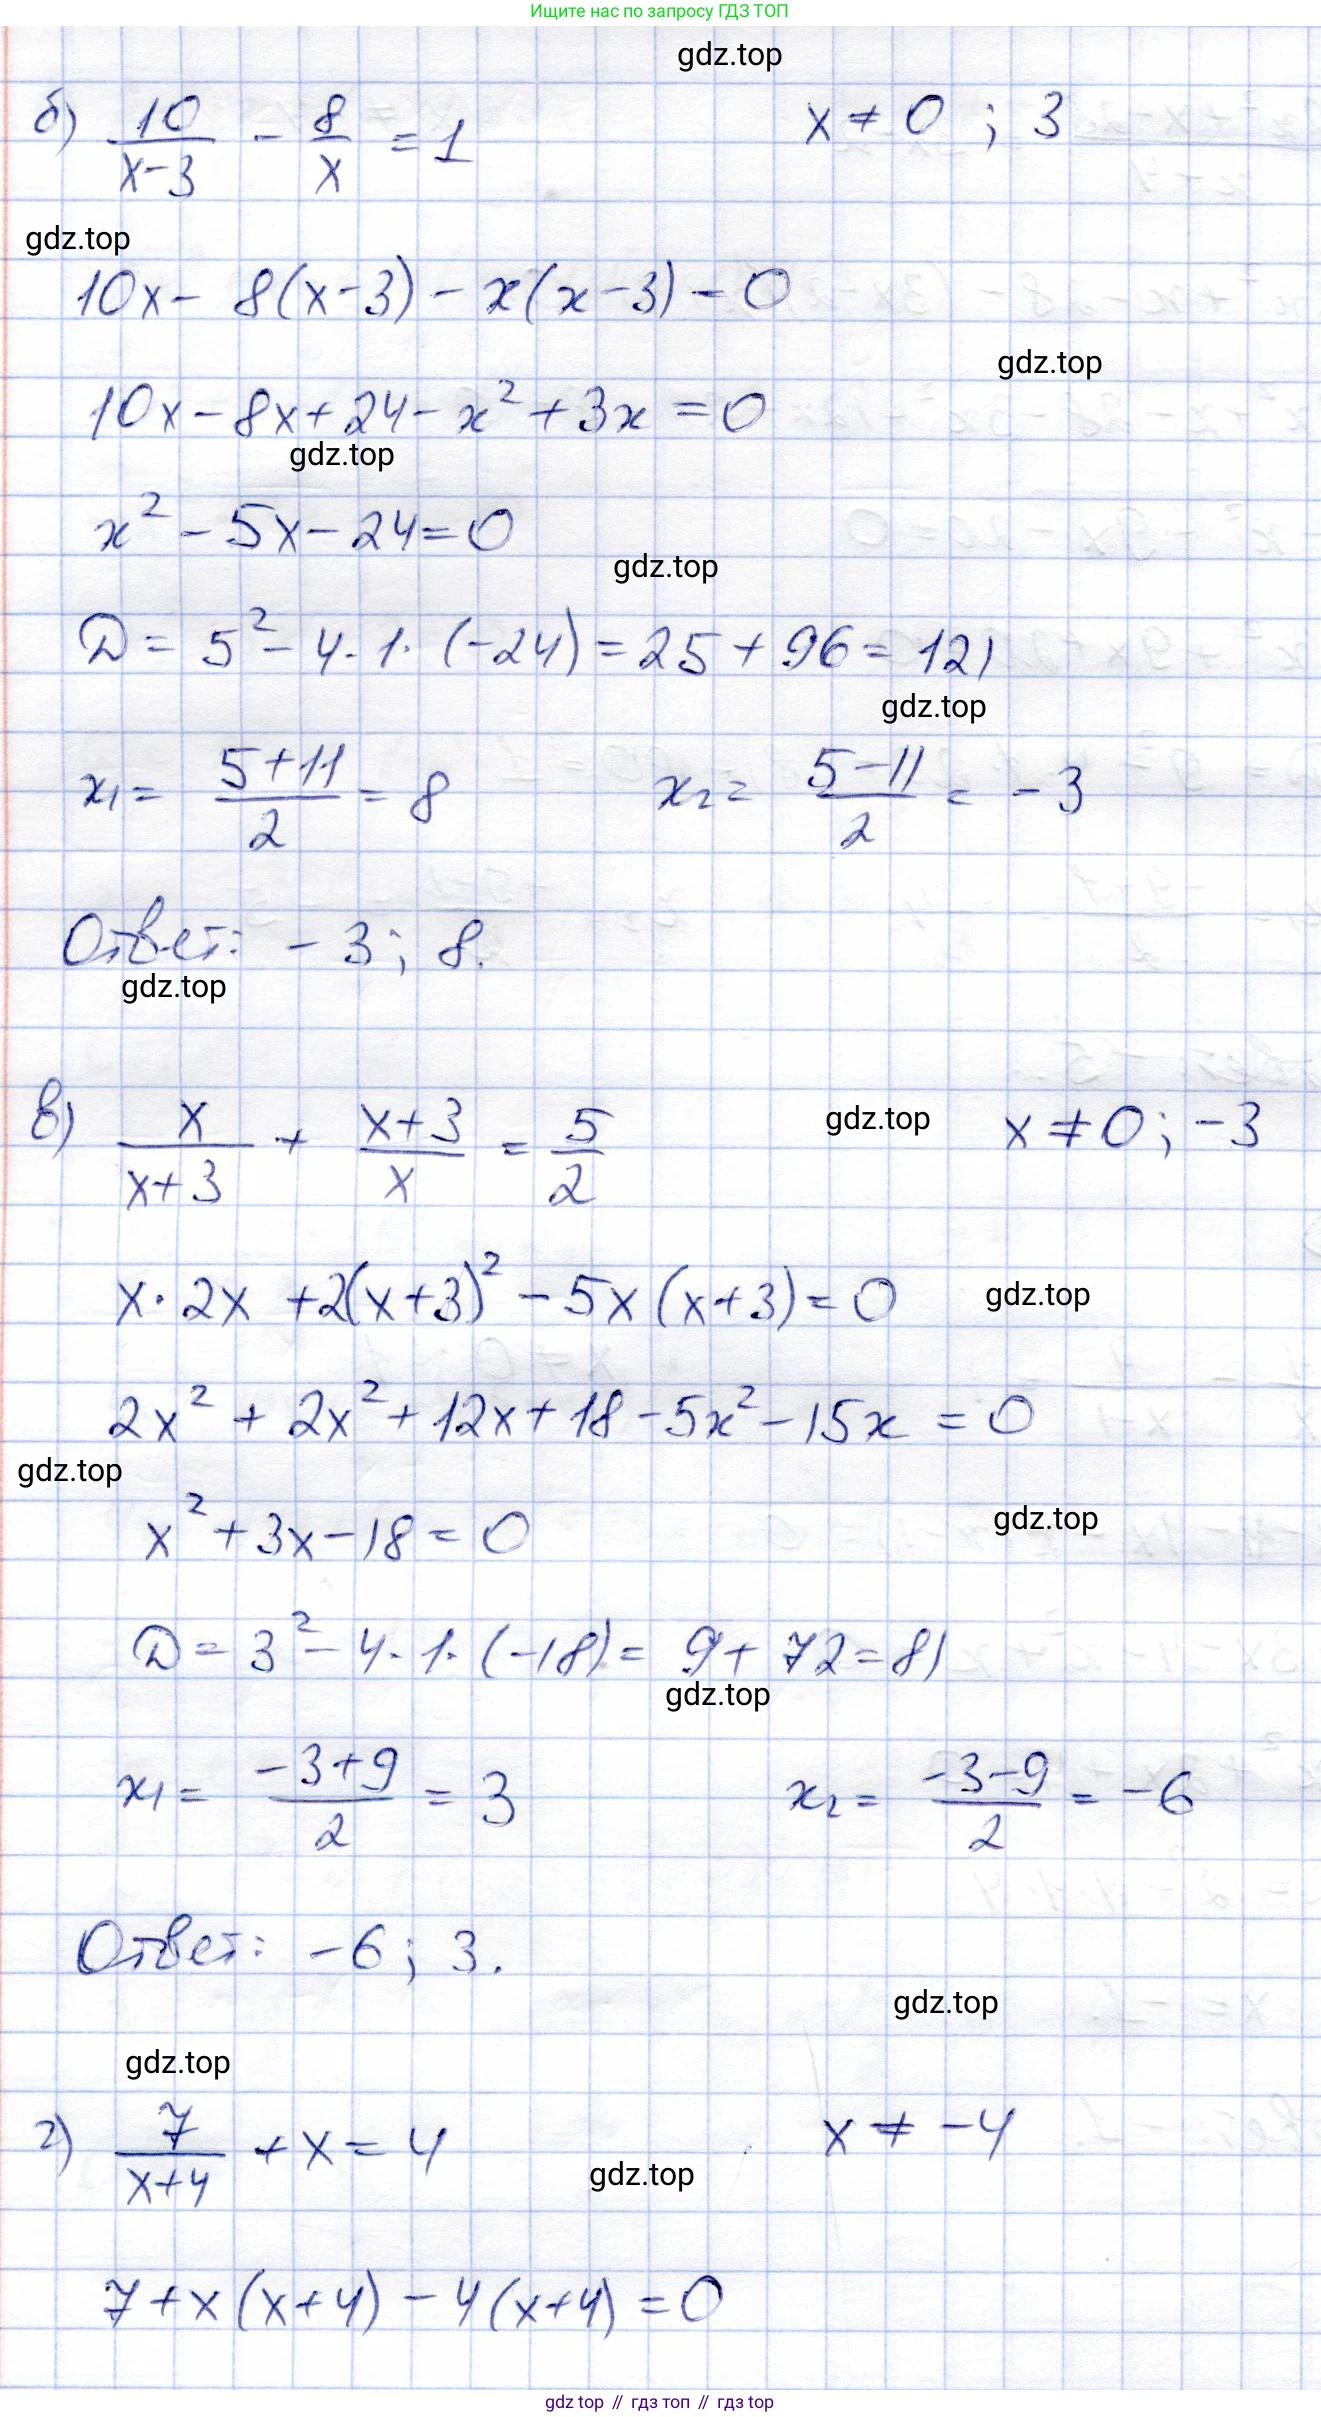 Ищите нас по запросу ГДЗ ТОП
gdz.top
б) 10/(x-3) - 8/x = 1    x ≠ 0 ; 3
gdz.top
10x - 8(x-3) - x(x-3) = 0
gdz.top
10x - 8x + 24 - x² + 3x = 0
gdz.top
x² - 5x - 24 = 0
gdz.top
D = 5² - 4·1·(-24) = 25 + 96 = 121
gdz.top
x₁ = (5+11)/2 = 8    x₂ = (5-11)/2 = -3
Ответ: -3; 8.
gdz.top
в) x/(x+3) + (x+3)/x = 5/2    gdz.top    x ≠ 0; -3
x·2x + 2(x+3)² - 5x(x+3) = 0    gdz.top
2x² + 2x² + 12x + 18 - 5x² - 15x = 0
gdz.top
x² + 3x - 18 = 0    gdz.top
D = 3² - 4·1·(-18) = 9 + 72 = 81
gdz.top
x₁ = (-3+9)/2 = 3    x₂ = (-3-9)/2 = -6
Ответ: -6; 3.
gdz.top
gdz.top
г) 7/(x+4) + x = 4    x ≠ -4
gdz.top
7 + x(x+4) - 4(x+4) = 0
gdz top // гдз топ // gdz top